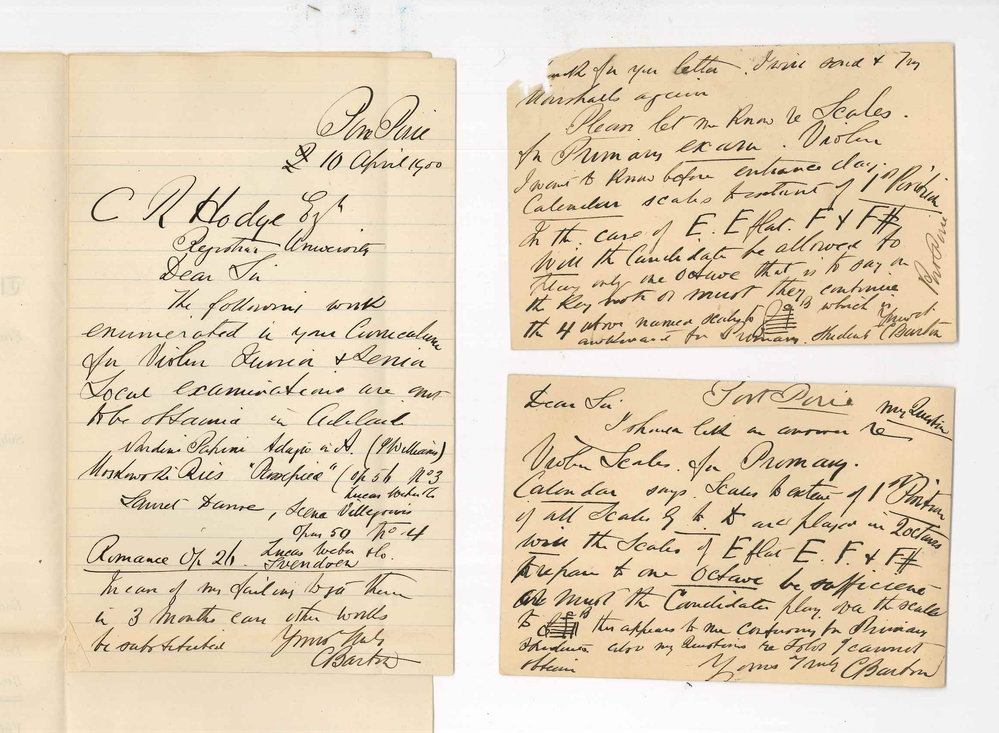 Port Pirie
10 April 1900
C R Hodge Esq
Registrar University
Dear Sir
The following work
enumerated in your Curriculum
for Violin Junior & Senior
Local examinations are not
to be obtained in Adelaide
Nardini Adagio in A. (Williams)
Ries "(op 56 No 3
Lucas Weber Co
Sauret Danse, Scena
Opus 50 No 4
Lucas Weber & Co.
Romance Op 26. Svendsen
In case of my failing to get them
in 3 months can other works
be substituted Yours truly
C Barton
for your letter. I will send & try
Marshalls again
Please let me know re Scales.
for Primary exam. Violin
I want to know before entrance day.
Calendar scales to extent of 1st Position
In the case of E. E flat. F & F#
Will the Candidate be allowed to
play only one octave that is to say on
the key note or must they continue
the 4 above named scales to B which is
awkward for Primary. Student
C Barton
Port Pirie
Dear Sir Port Pirie my Question
I should like an answer re
Violin Scales. for Primary.
Calendar says. Scales to extent of 1st Position
if all Scales G to D are played in 2 octaves
will the Scales of E flat E. F. & F#
prepare to one octave be sufficient
or must the Candidates play over the scale
to B this appears to me confusing for Primary
students also my Questions re Solos I cannot
obtain Yours Truly C Barton